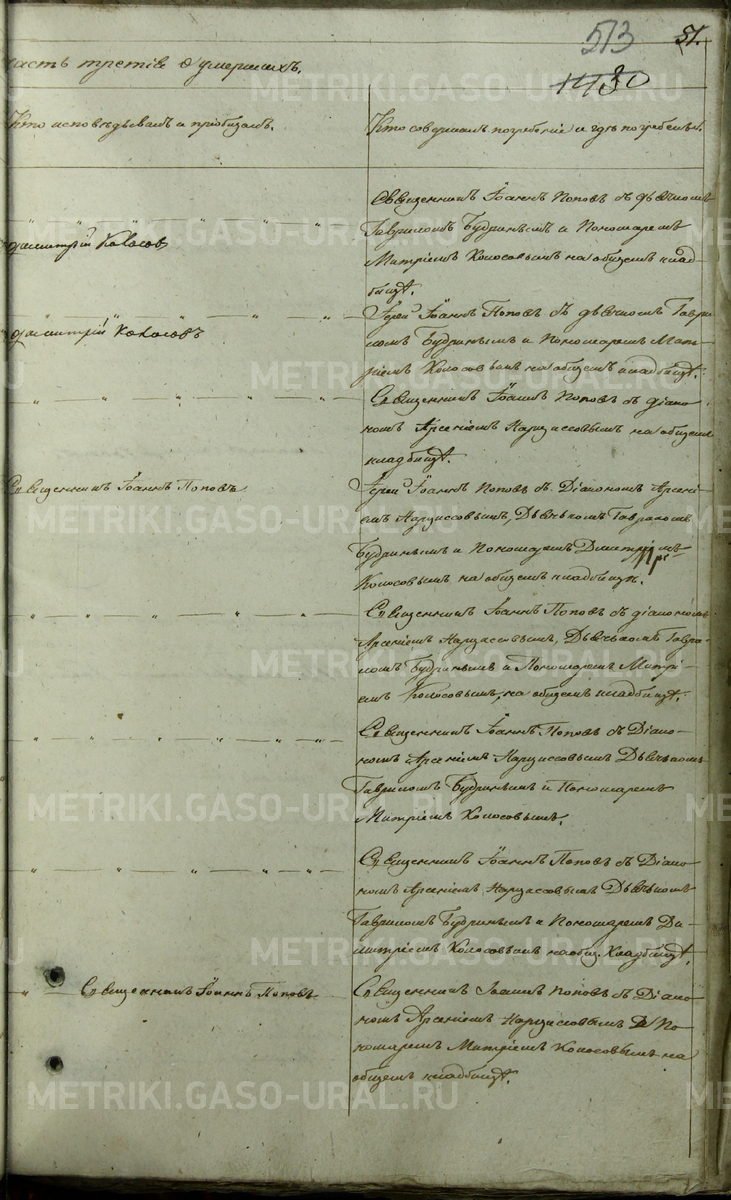 513 51.
1430
часть третія о умершихъ.
Кто исповѣдывалъ и пріобщалъ.
Кто совершалъ погребеніе и гдѣ погребены.
Священникъ Іоаннъ Поповъ съ дьячкомъ
Гавриломъ Будринымъ и Пономаремъ
Димитрій Колосовъ
Митріемъ Колосовымъ на общемъ клад-
бищѣ.
Іерей Іоаннъ Поповъ съ дьячкомъ Гаври
Димитрій Колосовъ
ломъ Будринымъ и Пономаремъ Мит-
ріемъ Колосовымъ на общемъ кладбищѣ.
Священникъ Іоаннъ Поповъ съ діако-
номъ Арсеніемъ Нарциссовымъ на общемъ
кладбищѣ.
Священникъ Іоаннъ Поповъ
Іерей Іоаннъ Поповъ съ Діакономъ Арсені-
емъ Нарциссовымъ, Дьячкомъ Гавриломъ
Будринымъ и Пономаремъ Дмитріемъ
Колосовымъ на общемъ кладбищѣ.
Священникъ Іоаннъ Поповъ съ діакономъ
Арсеніемъ Нарциссовымъ, Дьячкомъ Гаври-
ломъ Будринымъ и Пономаремъ Митрі-
емъ Колосовымъ, на общемъ кладбищѣ.
Священникъ Іоаннъ Поповъ съ Діако-
номъ Арсеніемъ Нарциссовымъ Дьячкомъ
Гавриломъ Будринымъ и Пономаремъ
Митріемъ Колосовымъ.
Священникъ Іоаннъ Поповъ съ Діако-
номъ Арсеніемъ Нарциссовымъ Дьячкомъ
Гавриломъ Будринымъ и Пономаремъ Ди-
митріемъ Колосовымъ на общ. Кладбищѣ.
Священникъ Іоаннъ Поповъ
Священникъ Іоаннъ Поповъ съ Діако-
номъ Арсеніемъ Нарциссовымъ По-
номаремъ Митріемъ Колосовымъ на
общемъ кладбищѣ.
METRIKI.GASO-URAL.RU